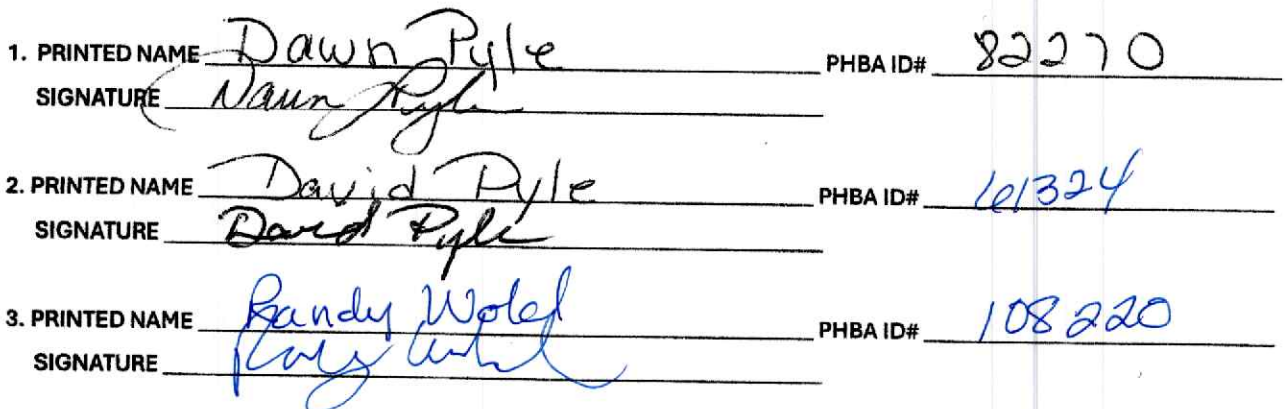 1. PRINTED NAME Dawn Pyle PHBA ID# 82270
SIGNATURE Dawn Pyle
2. PRINTED NAME David Pyle PHBA ID# 61324
SIGNATURE David Pyle
3. PRINTED NAME Randy Wold PHBA ID# 108220
SIGNATURE